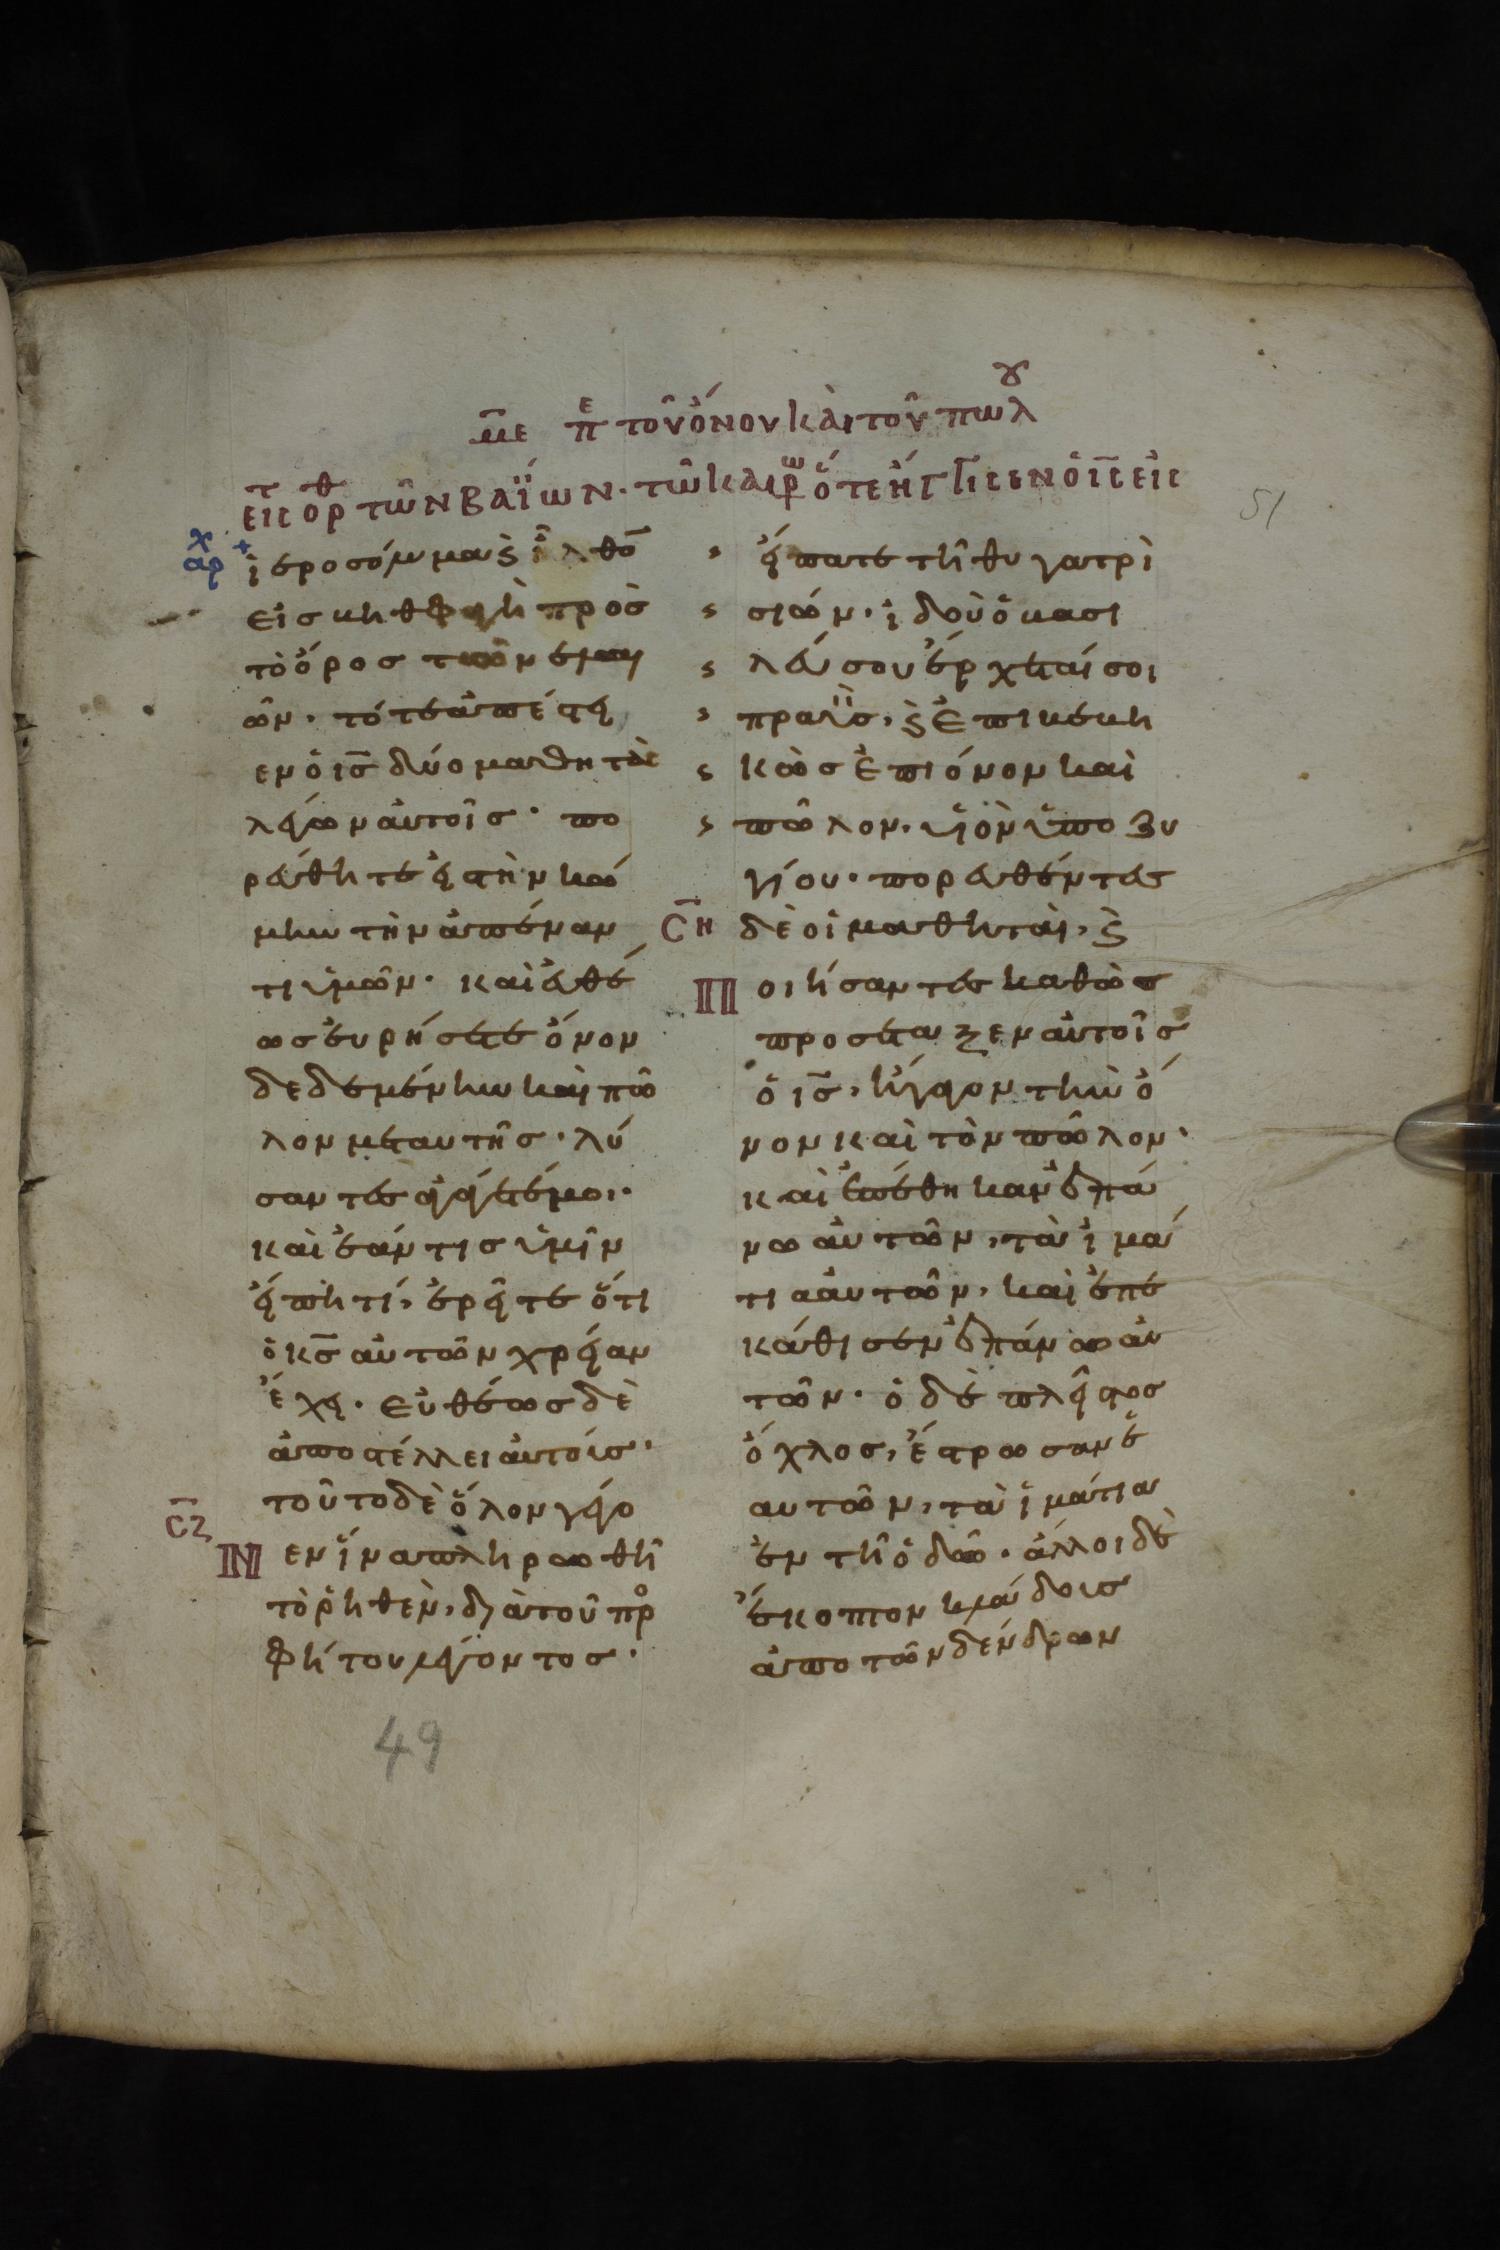 με πε τοῦ ὄνου καὶ τοῦ πώλου
εις ορτ θ τῶν βαΐων· τῶ καιρῶ ὅτε ἤγγισεν ὁ ις εἰς
χ
αρ
51
ἱεροσόλυμα καὶ ἦλθον
εἰς βηθφαγὴ πρὸσ
τὸ ὄρος τῶν ἐλαι
ῶν· τότε ἀπέστει
εν ὁ ις δύο μαθητὰς
λέγων αὐτοῖσ· πο
ρεύθητε εἰς τὴν κώ
μην τὴν ἀπέναν
τι ὑμῶν· καὶ εὐθέ
ωσ εὑρήσετε ὄνον
δεδεμένην καὶ πῶ
λον μετ αυτῆσ· λύ
σαντες ἀγάγετέ μοι·
καὶ ἐάν τισ ὑμῖν
εἴπη τί, ἐρεῖτε ὅτι
ὁ κς αὐτῶν χρείαν
ἔχει· εὐθέωσ δὲ
ἀποστέλλει αὐτούσ·
τοῦτο δὲ ὅλον γέγο
ςζ
Νεν ἵνα πληρωθῆ
τὸ ῥηθὲν, διὰ τοῦ προ
φήτου λέγοντοσ·
εἴπατε τῆ θυγατρὶ
σιών· ἰδοὺ ὁ βασι
λεύσ σου ἔρχεταί σοι
πραῢσ, καὶ ἐπιβεβη
κὼσ ἐπὶ ὄνον καὶ
πῶλον, υἱὸν ὑποζυ
γίου· πορευθέντεσ
ςη
δὲ οἱ μαθηταὶ, καὶ
Ποιήσαντες καθὼσ
προσέταξεν αὐτοῖσ
ὁ ις, ἤγαγον τὴν ὄ
νον καὶ τὸν πῶλον·
καὶ ἐπέθηκαν ἐπά
νω αὐτῶν, τὰ ἱμά
τια αὐτῶν, καὶ ἐπε
κάθισεν ἐπάνω αὐ
τῶν· ὁ δὲ πλεῖστος
ὄχλοσ, ἔστρωσαν ἑ
αυτῶν, τὰ ἱμάτια
ἐν τῆ ὁδῶ· ἄλλοι δὲ
ἔκοπτον κλάδουσ
ἀπὸ τῶν δένδρων
49